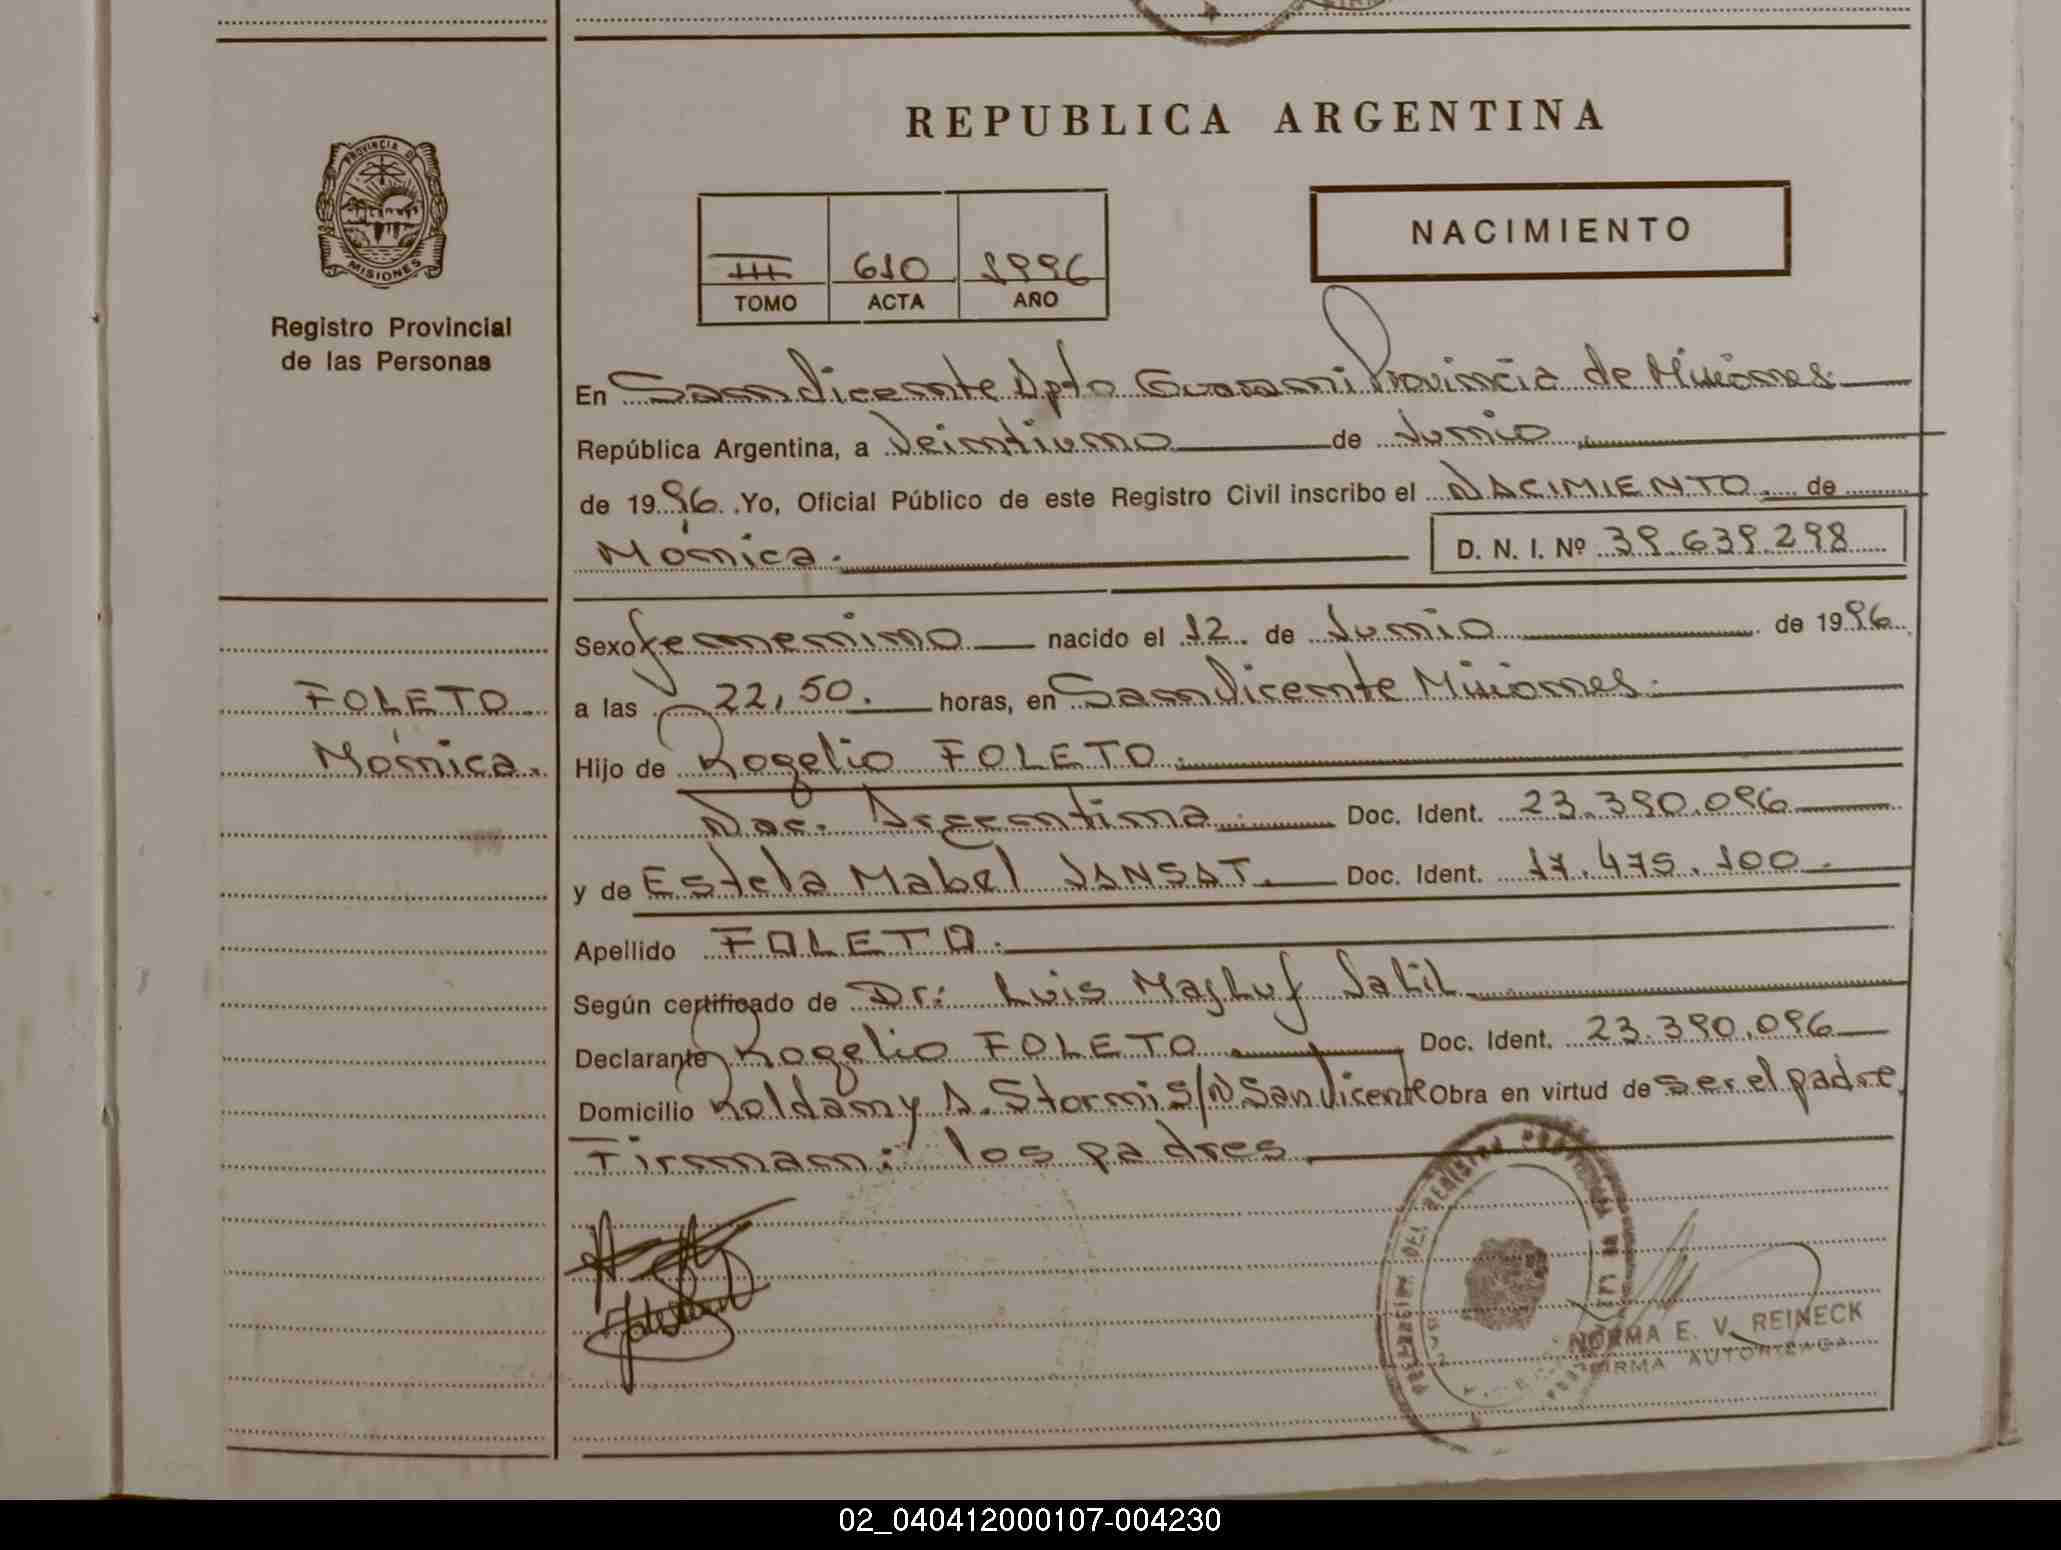 REPUBLICA ARGENTINA
PROVINCIA DE
MISIONES
Registro Provincial
de las Personas
III 610 1996
TOMO ACTA AÑO
NACIMIENTO
En San Vicente Dpto Guaraní Provincia de Misiones.
República Argentina, a Veintiuno de Junio
de 1996. Yo, Oficial Público de este Registro Civil inscribo el NACIMIENTO de
Mónica. D. N. I. Nº 39.639.298
Sexo femenino nacido el 12 de Junio de 1996
FOLETO a las 22,50. horas, en San Vicente Misiones.
Mónica. Hijo de Rogelio FOLETO.
Nac. Argentina. Doc. Ident. 23.390.096
y de Estela Mabel JANSAT. Doc. Ident. 17.475.100.
Apellido FOLETO.
Según certificado de Dr: Luis Majluf Jalil
Declarante Rogelio FOLETO Doc. Ident. 23.390.096
Domicilio Roldam y A. Storni S/N San Vicente Obra en virtud de ser el padre.
Firman: los padres
NORMA E. V. REINECK
FIRMA AUTORIZADA
02_040412000107-004230